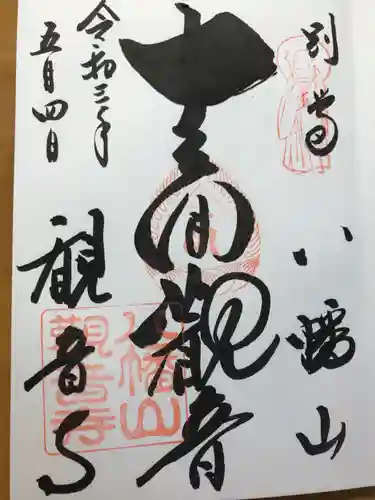 別尊
八幡山
十一面観音
令和三年
五月四日
観音寺
八幡山
観音寺